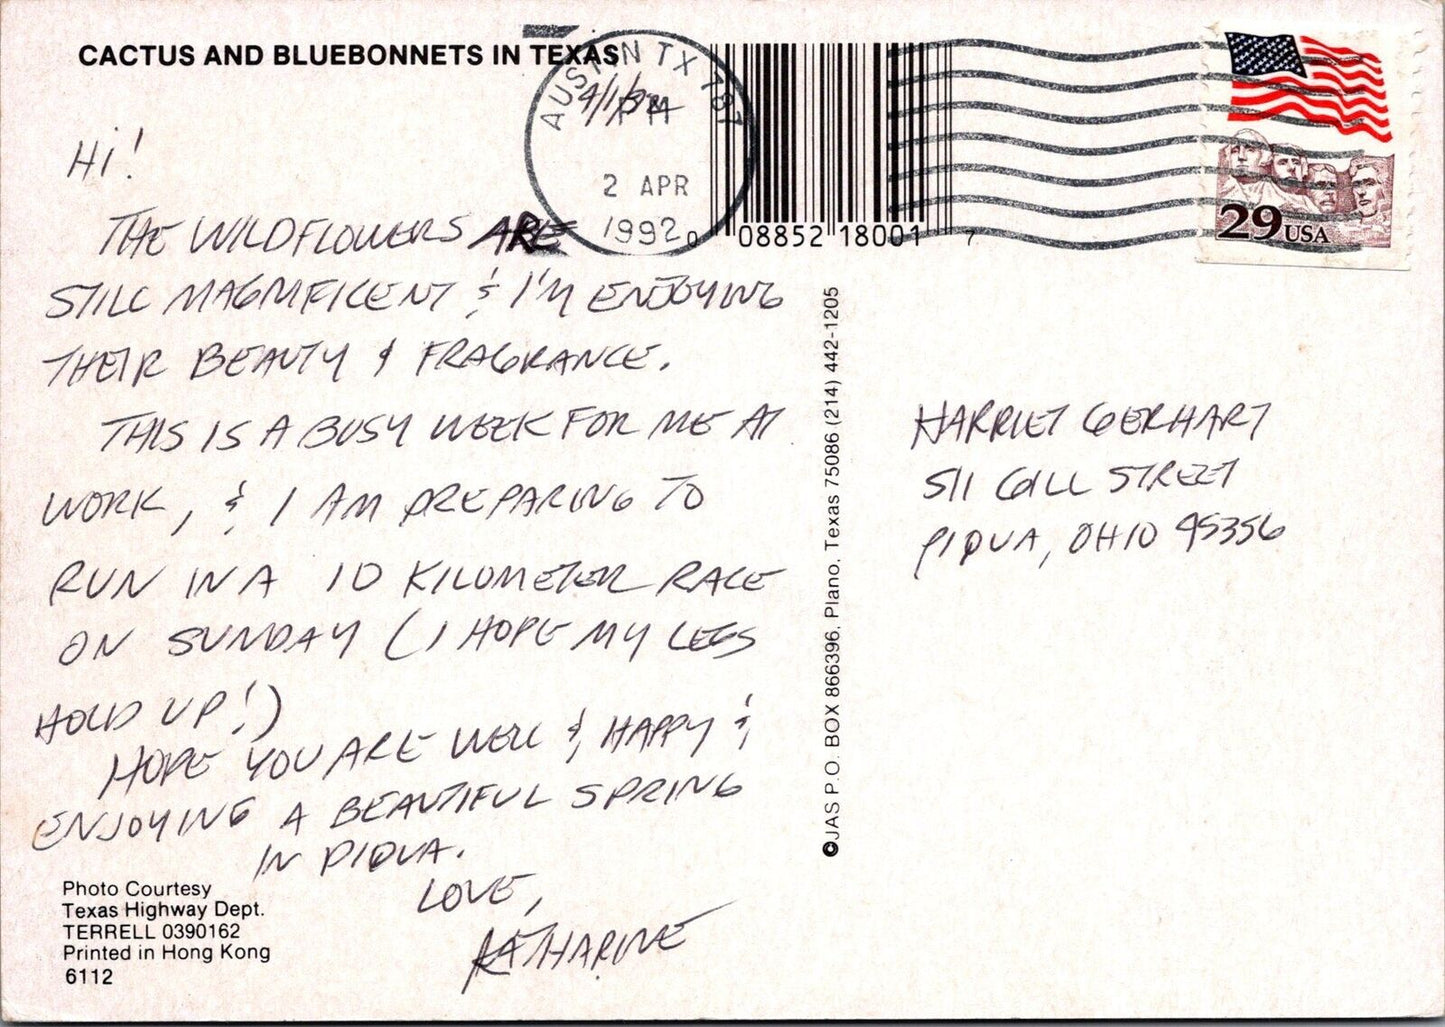 CACTUS AND BLUEBONNETS IN TEXAS
AUSTIN TX 787
PM
2 APR
1992
0 08852 18001 7
29 USA
4/1/92
HI!
THE WILDFLOWERS ARE
STILL MAGNIFICENT & I'M ENJOYING
THEIR BEAUTY & FRAGRANCE.
THIS IS A BUSY WEEK FOR ME AT
WORK, & I AM PREPARING TO
RUN IN A 10 KILOMETER RACE
ON SUNDAY (I HOPE MY LEGS
HOLD UP!)
HOPE YOU ARE WELL & HAPPY &
ENJOYING A BEAUTIFUL SPRING
IN PIQUA.
LOVE,
KATHARINE
Photo Courtesy
Texas Highway Dept.
TERRELL 0390162
Printed in Hong Kong
6112
©JAS P.O. BOX 866396, Plano, Texas 75086 (214) 442-1205
HARRIET GERHART
511 GILL STREET
PIQUA, OHIO 45356